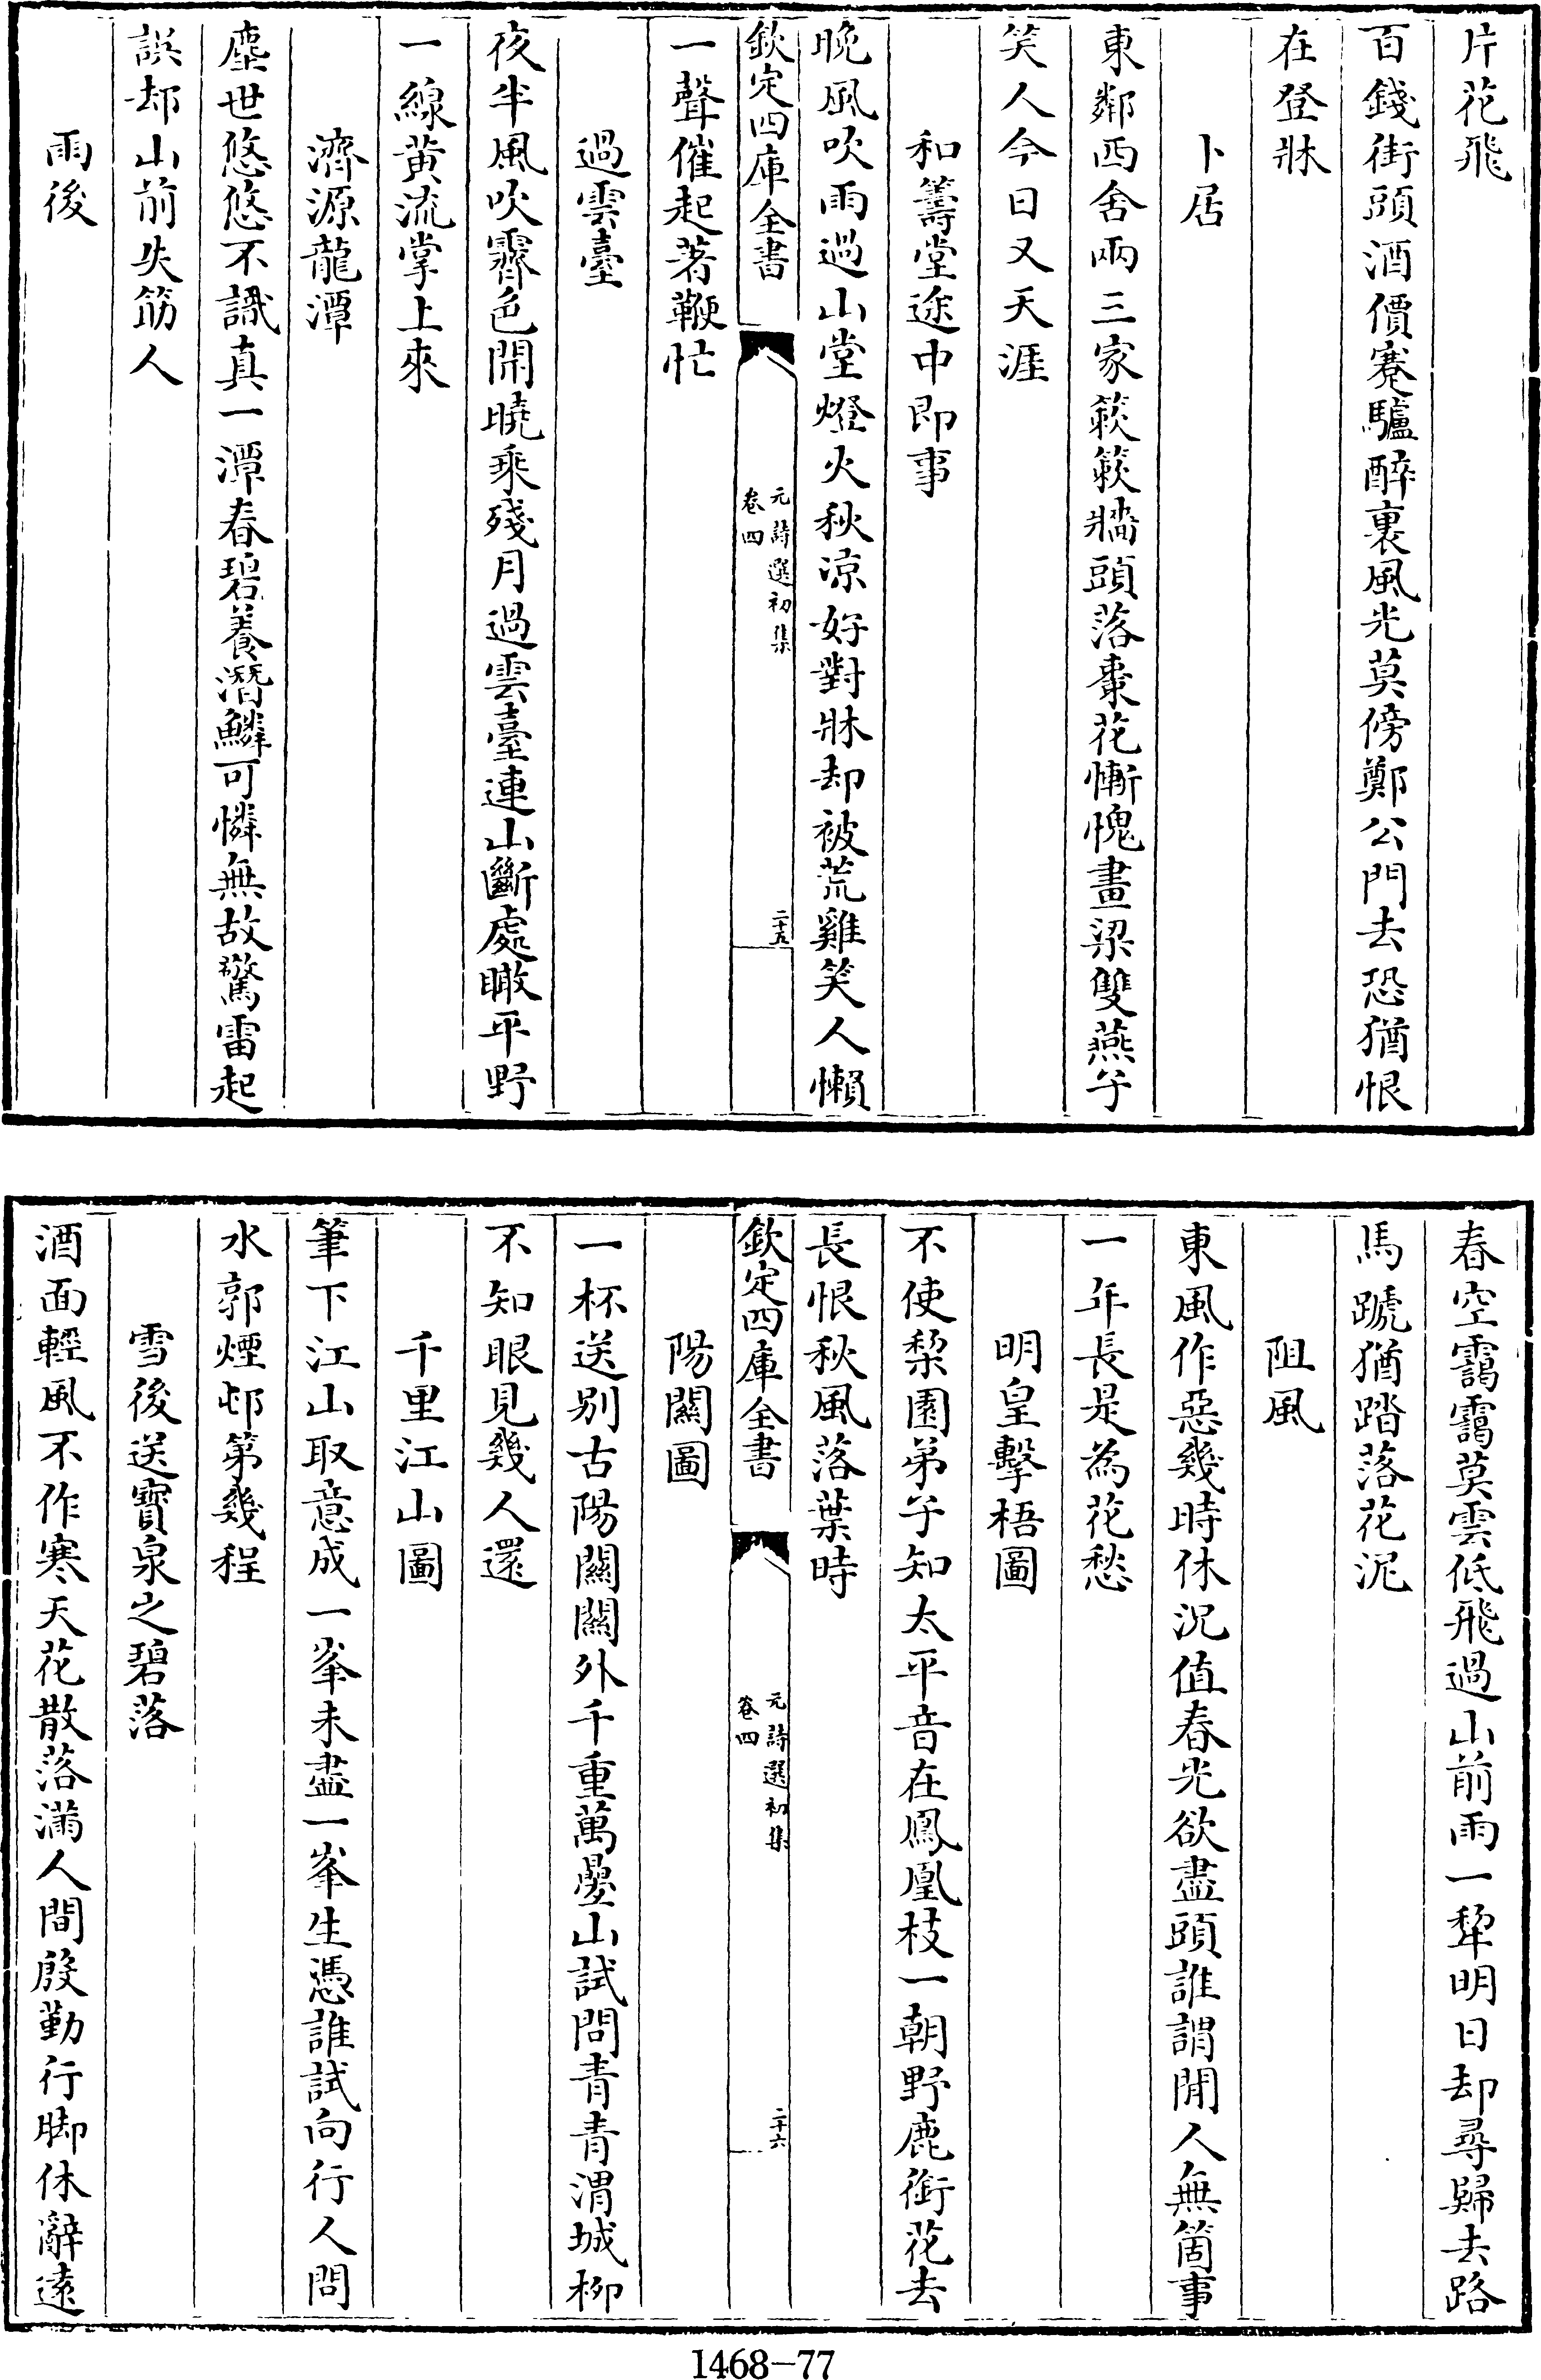 片花飛
百錢街頭酒價蹇驢醉裏風光莫傍鄭公門去恐猶恨
在登牀
卜居
東鄰西舍兩三家簌簌牆頭落棗花慚愧畫梁雙燕子
笑人今日又天涯
和籌堂途中即事
晚風吹雨過山堂燈火秋涼好對牀却被荒雞笑人懶
欽定四庫全書
元詩選初集
卷四
二十五
一聲催起著鞭忙
過雲臺
夜半風吹霽色開曉乘殘月過雲臺連山斷處瞰平野
一線黃流掌上來
濟源龍潭
塵世悠悠不識真一潭春碧養潛鱗可憐無故驚雷起
誤却山前失筯人
雨後
春空靄靄莫雲低飛過山前雨一犂明日却尋歸去路
馬蹏猶踏落花泥
阻風
東風作惡幾時休況值春光欲盡頭誰謂閒人無箇事
一年長是為花愁
明皇擊梧圖
不使棃園弟子知太平音在鳳凰枝一朝野鹿銜花去
長恨秋風落葉時
欽定四庫全書
元詩選初集
卷四
二十六
陽關圖
一杯送别古陽關關外千重萬疊山試問青青渭城柳
不知眼見幾人還
千里江山圖
筆下江山取意成一峯未盡一峯生憑誰試向行人問
水郭煙邨第幾程
雪後送寶泉之碧落
酒面輕風不作寒天花散落滿人間殷勤行脚休辭遠
1468-77